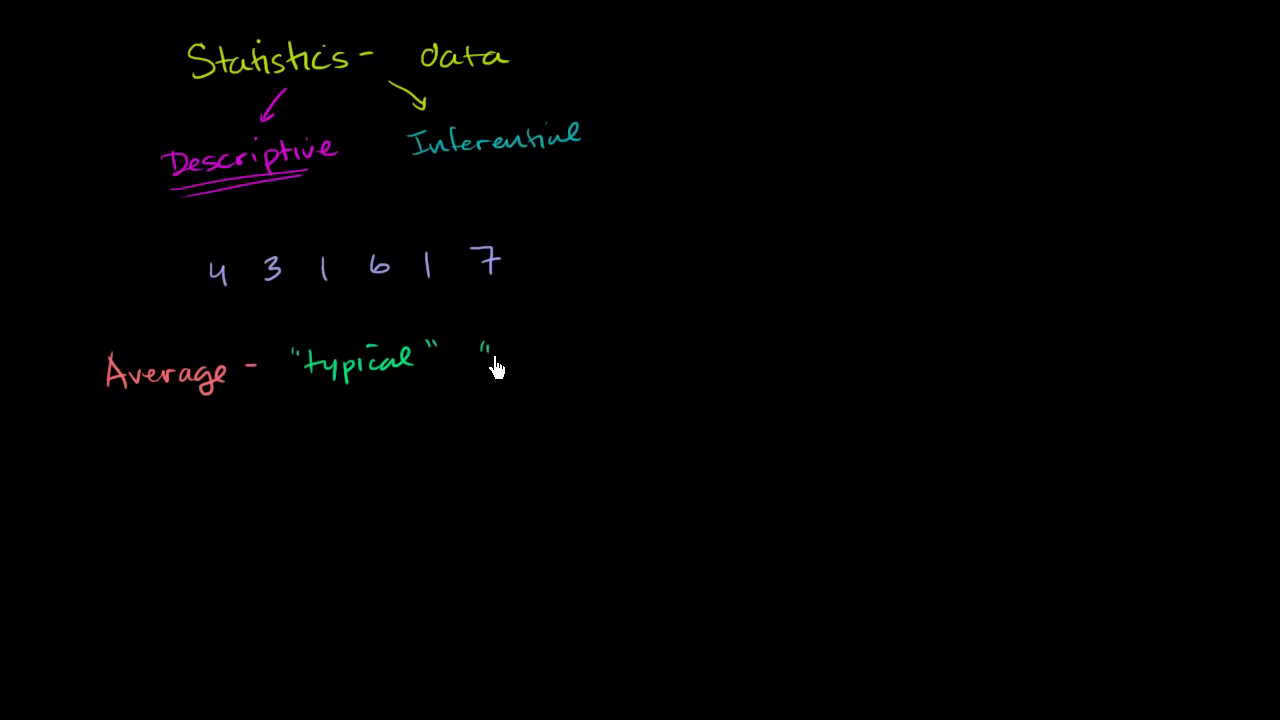 Statistics - data
Descriptive Inferential
4 3 1 6 1 7
Average - "typical" "